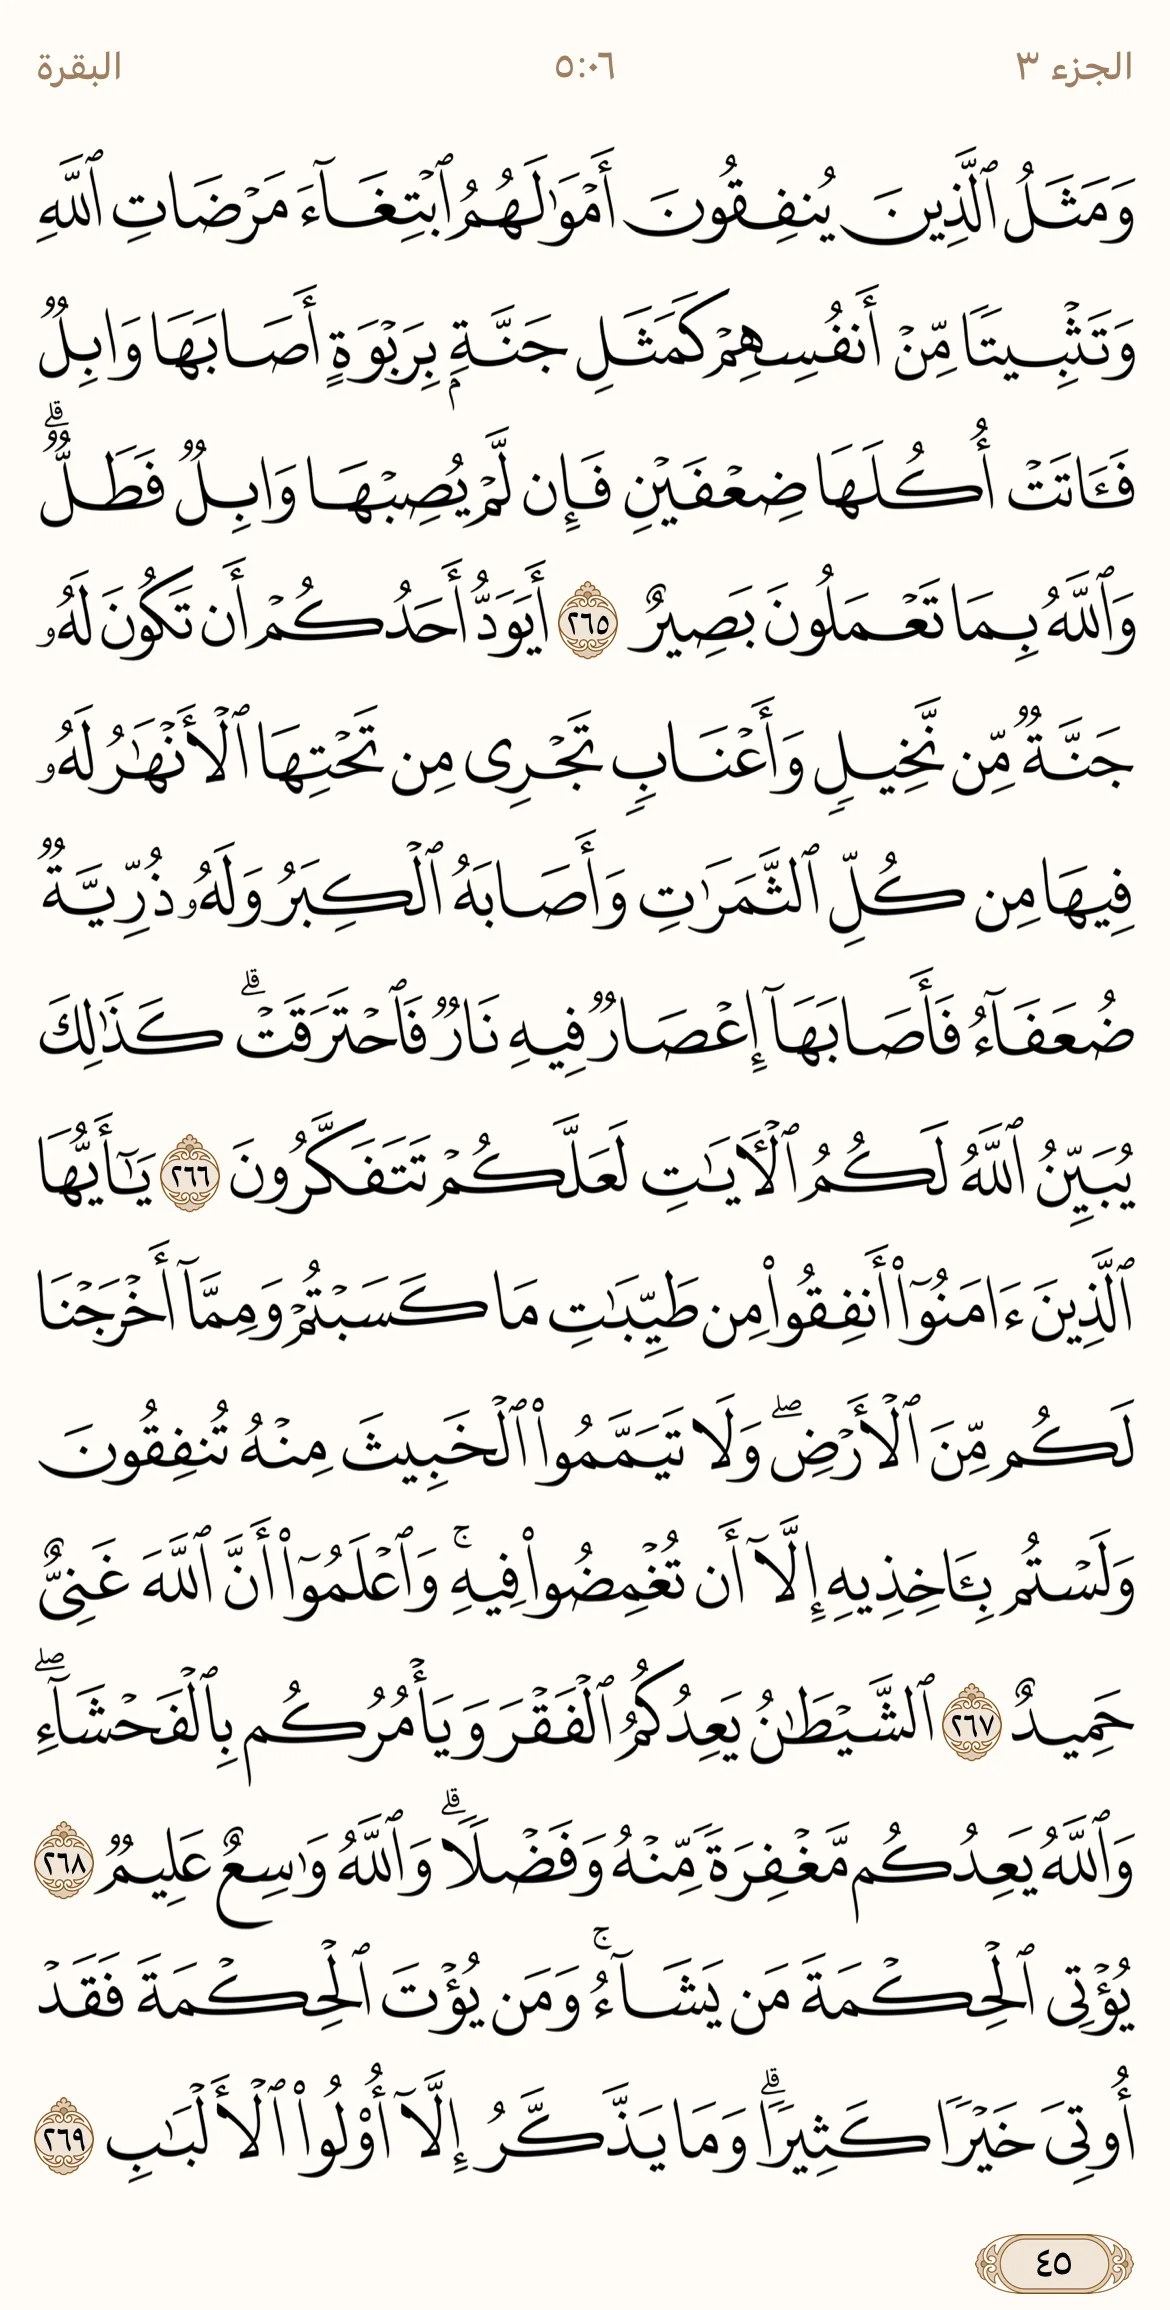 الجزء ٣ ٥:٠٦ البقرة
وَمَثَلُ ٱلَّذِينَ يُنفِقُونَ أَمْوَٰلَهُمُ ٱبْتِغَآءَ مَرْضَاتِ ٱللَّهِ
وَتَثْبِيتًا مِّنْ أَنفُسِهِمْ كَمَثَلِ جَنَّةٍۭ بِرَبْوَةٍ أَصَابَهَا وَابِلٌ
فَـَٔاتَتْ أُكُلَهَا ضِعْفَيْنِ فَإِن لَّمْ يُصِبْهَا وَابِلٌ فَطَلٌّ ۗ
وَٱللَّهُ بِمَا تَعْمَلُونَ بَصِيرٌ ٢٦٥ أَيَوَدُّ أَحَدُكُمْ أَن تَكُونَ لَهُۥ
جَنَّةٌ مِّن نَّخِيلٍ وَأَعْنَابٍ تَجْرِى مِن تَحْتِهَا ٱلْأَنْهَٰرُ لَهُۥ
فِيهَا مِن كُلِّ ٱلثَّمَرَٰتِ وَأَصَابَهُ ٱلْكِبَرُ وَلَهُۥ ذُرِّيَّةٌ
ضُعَفَآءُ فَأَصَابَهَآ إِعْصَارٌ فِيهِ نَارٌ فَٱحْتَرَقَتْ ۗ كَذَٰلِكَ
يُبَيِّنُ ٱللَّهُ لَكُمُ ٱلْـَٔايَٰتِ لَعَلَّكُمْ تَتَفَكَّرُونَ ٢٦٦ يَٰٓأَيُّهَا
ٱلَّذِينَ ءَامَنُوٓا۟ أَنفِقُوا۟ مِن طَيِّبَٰتِ مَا كَسَبْتُمْ وَمِمَّآ أَخْرَجْنَا
لَكُم مِّنَ ٱلْأَرْضِ ۖ وَلَا تَيَمَّمُوا۟ ٱلْخَبِيثَ مِنْهُ تُنفِقُونَ
وَلَسْتُم بِـَٔاخِذِيهِ إِلَّآ أَن تُغْمِضُوا۟ فِيهِ ۚ وَٱعْلَمُوٓا۟ أَنَّ ٱللَّهَ غَنِىٌّ
حَمِيدٌ ٢٦٧ ٱلشَّيْطَٰنُ يَعِدُكُمُ ٱلْفَقْرَ وَيَأْمُرُكُم بِٱلْفَحْشَآءِ ۖ
وَٱللَّهُ يَعِدُكُم مَّغْفِرَةً مِّنْهُ وَفَضْلًا ۗ وَٱللَّهُ وَٰسِعٌ عَلِيمٌ ٢٦٨
يُؤْتِى ٱلْحِكْمَةَ مَن يَشَآءُ ۚ وَمَن يُؤْتَ ٱلْحِكْمَةَ فَقَدْ
أُوتِىَ خَيْرًا كَثِيرًا ۗ وَمَا يَذَّكَّرُ إِلَّآ أُو۟لُوا۟ ٱلْأَلْبَٰبِ ٢٦٩
٤٥